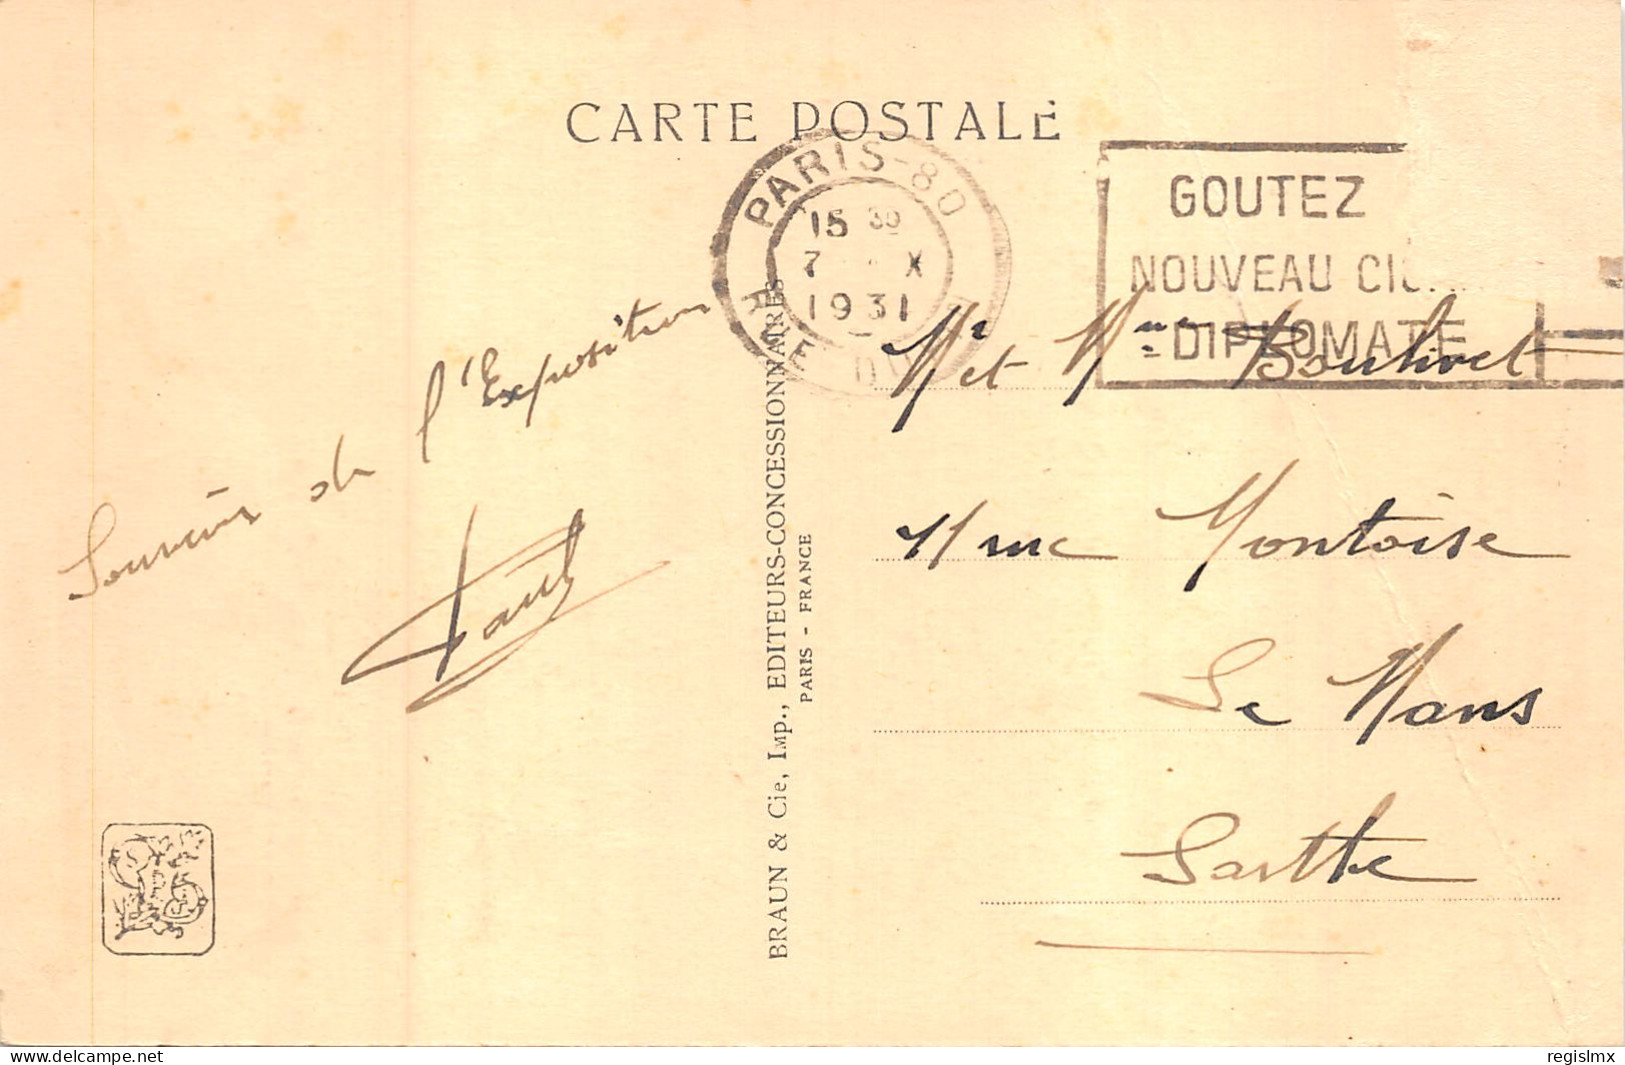 CARTE POSTALE
PARIS-80
15 30
7 X
1931
RUE DU
GOUTEZ
NOUVEAU
DIPLOMATE
Souvenir de l'Exposition
Paul
BRAUN & Cie, Imp., EDITEURS-CONCESSIONNAIRES
PARIS - FRANCE
Mr et Mme
11 rue Montoise
Le Mans
Sarthe
delcampe.net
regislmx